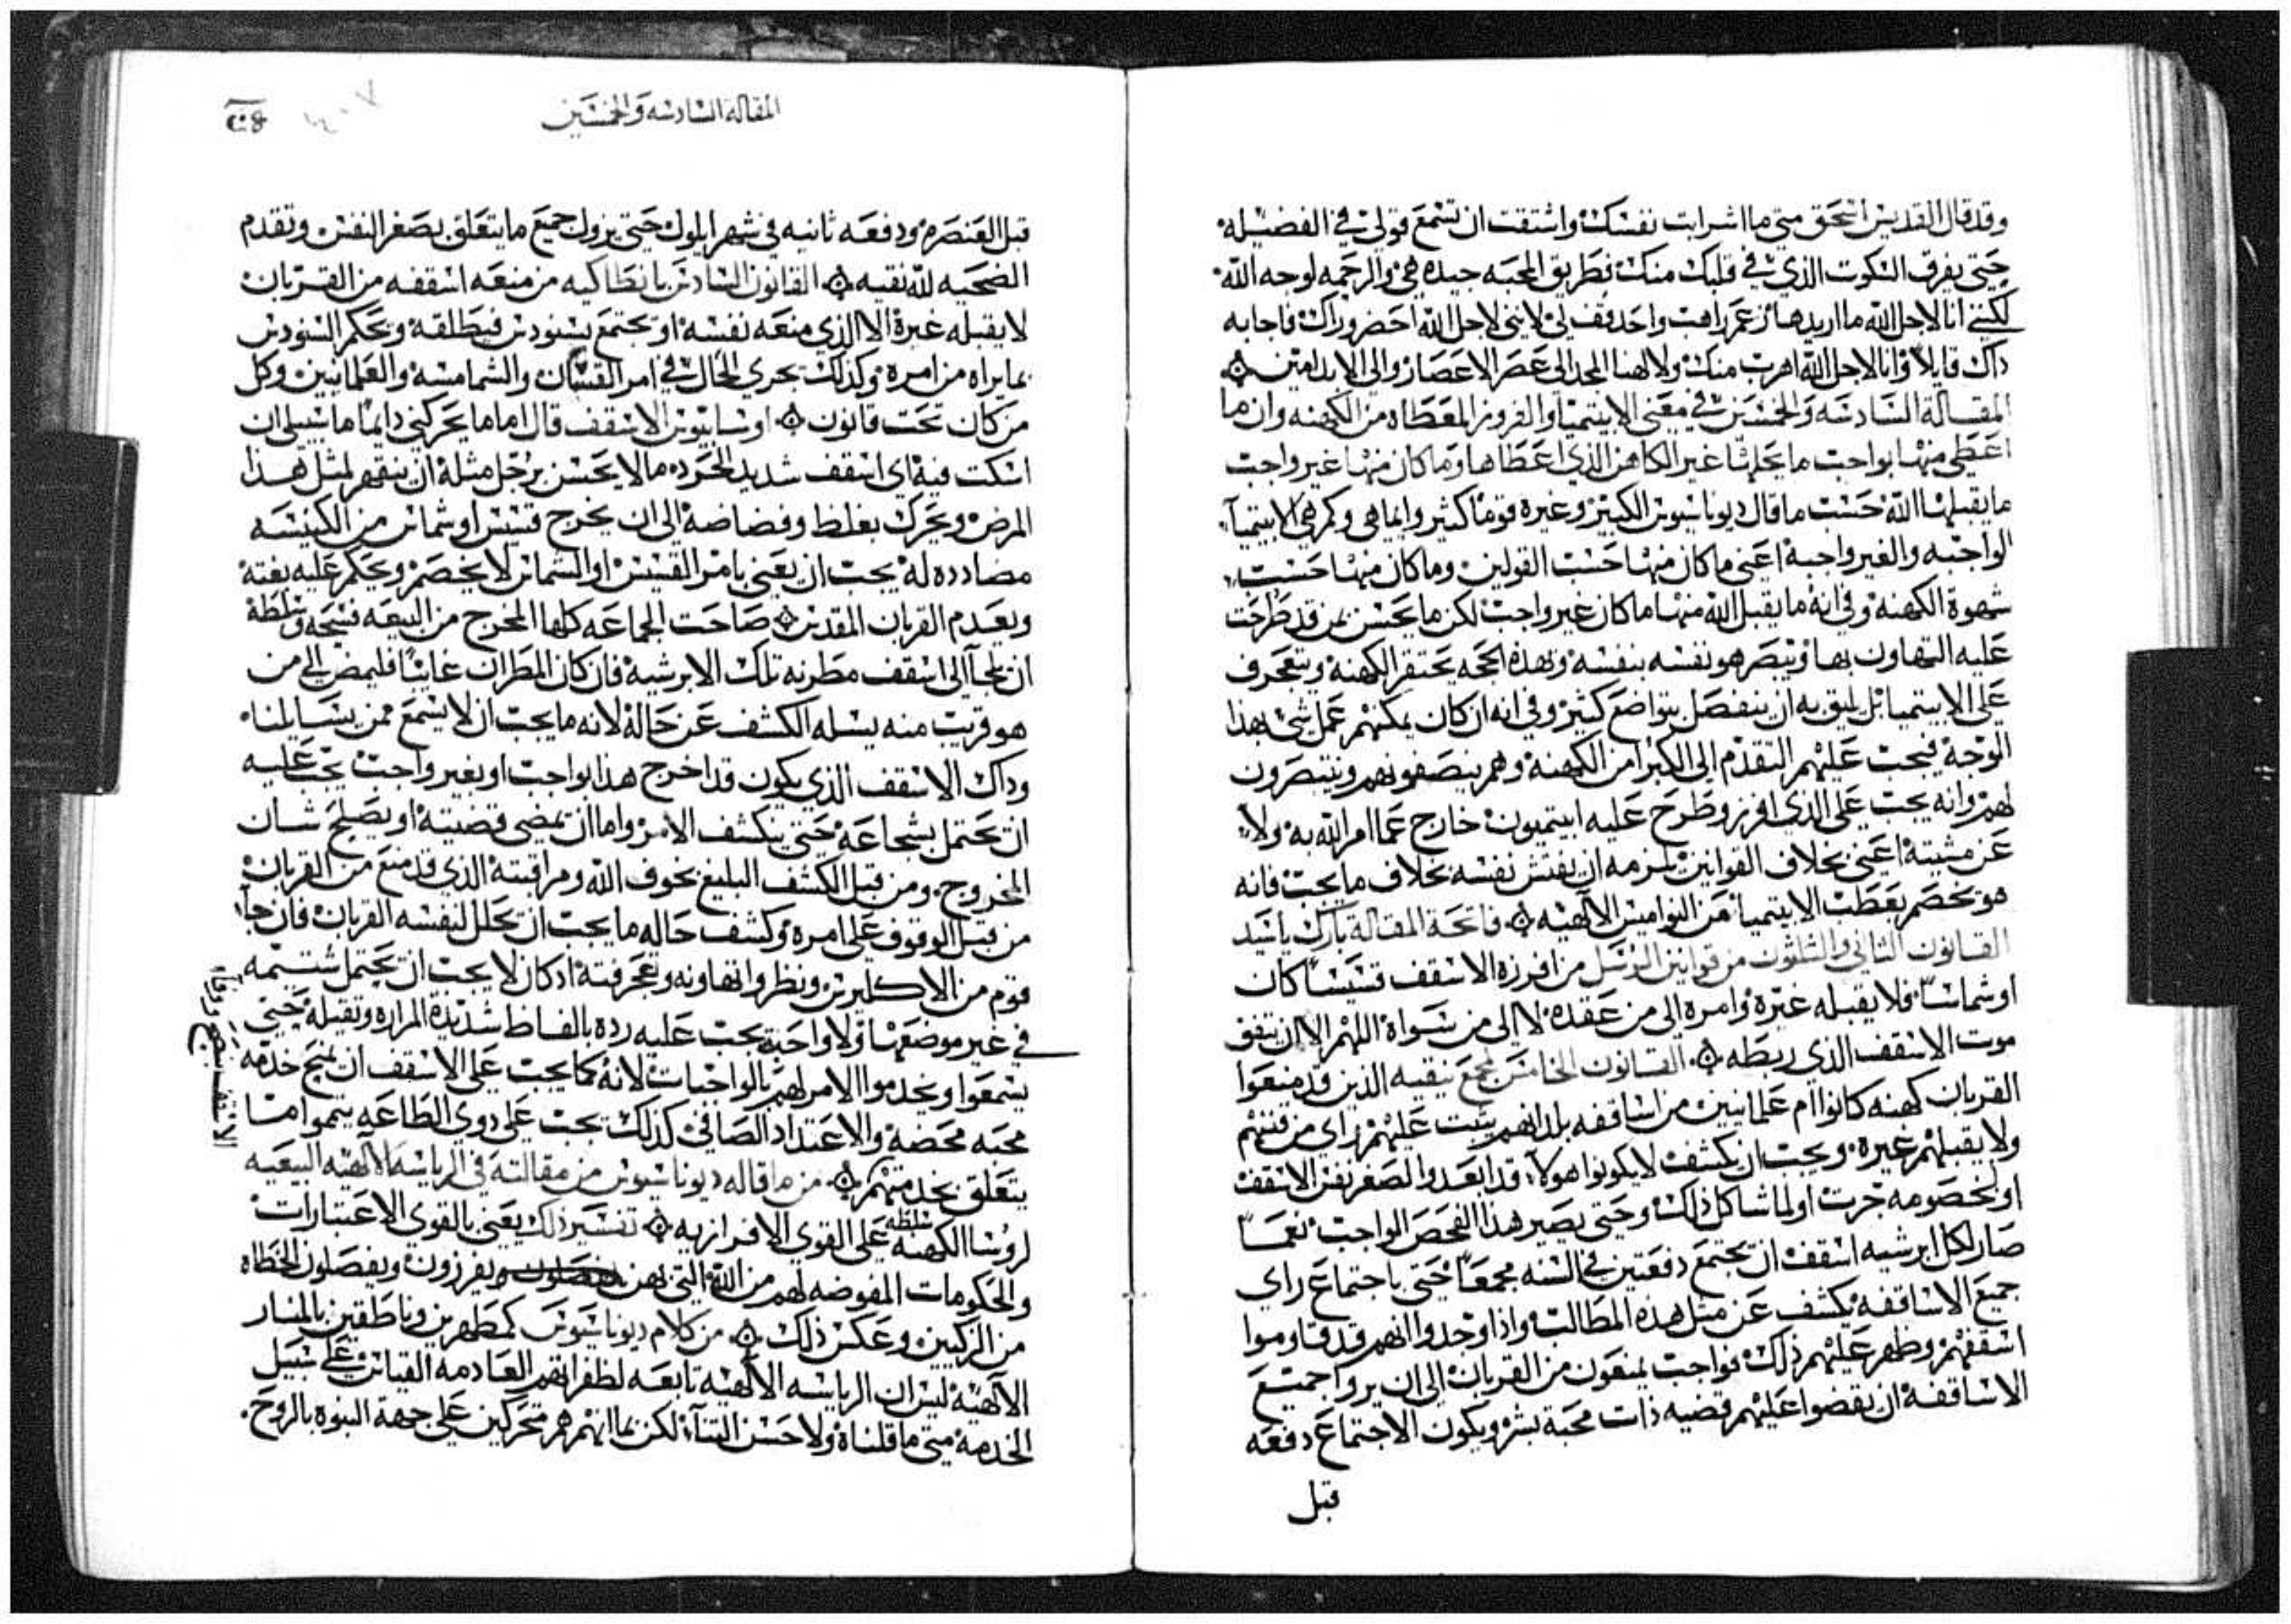 وقد قال القديس اسحق متي ما اشرابت نفسك واشتقت ان تسمع قولي في الفضيله
حتي يفرق السكوت الذي في قلبك منك فطريق المحبه جيده هي والرحمه لوجه الله
لكنني انا لاجل الله ما اريدها زعم راهب واحد قف لي لانني لاجل الله احضر وراك فاجابه
داك قايلا وانا لاجل الله اهرب منك ولالهنا المجد الي عصر الاعصار والي الابد امين
المقالة السادسه والخمسين في معني الابيتميا والفروز المعطاه من الكهنه وان ما
اعطي منها بواجب ما يحلها غير الكاهن الذي اعطاها وما كان منها غير واجب
ما يقبلها الله حسب ما قال ديوناسيوس الكبير وغيره قوما كثير وايما هي وكم هي الابيتميآ
الواجبه والغير واجبه اعني ما كان منها حسب القولين وما كان منها حسب
شهوة الكهنه وفي انه ما يقبل الله منها ما كان غير واجب لكن ما يحسن بمن قد طرحت
عليه التهاون بها وينتصر هو نفسه بنفسه وبهذه الحجه يحتقر الكهنه ويتعجرف
علي الابيتميا بل يليق به ان ينفصل بتواضع كثير وفي انه ان كان يمكنهم عمل شي بهذا
الوجه فيجب عليهم التقدم الي الكبرا من الكهنه وهم ينصفونهم وينتصرون
لهم وانه يجب علي الذي افرز وطرح عليه ابيتميون خارج عما امر الله به ولا
عن مشيته اعني بخلاف القوانين يلزمه ان يفتش نفسه بخلاف ما يجب فانه
هو تخصم بعطب الابيتميا من النواميس الالهيه فاتحة المقالة بارك ياسيد
القانون الثاني والثلثون من قوانين الرسل من افرزه الاسقف قسيسا كان
او شماسا فلا يقبله غيره وامره الي من عقده لا الي من سواه اللهم الا ان يتفق
موت الاسقف الذي ربطه القانون الخامس لمجمع نيقيه الذين قد منعوا
القربان كهنه كانوا ام علمانيين من اساقفه بلدانهم يثبت عليهم راي من منهم
ولا يقبلهم غيره ويجب ان يكشف لا يكونوا هولا قد ابعدوا لصغر نفس الاسقف
او لخصومه جرت او لما شاكل ذلك وحتي يصير هذا الفحص الواجب نعما
صار لكل ابرشيه اسقف ان تجتمع دفعتين في السنه مجمعا حتي باجتماع راي
جميع الاساقفه يكشف عن مثل هذه المطالب واذا وجدوا انهم قد قاوموا
اسقفهم وظهر عليهم ذلك فواجب يمنعون من القربان الي ان يروا جميع
الاساقفه ان يقضوا عليهم قضيه ذات محبة بشر ويكون الاجتماع دفعه
قبل
المقالة السادسه والخمسين
قبل العنصره ودفعه ثانيه في شهر ايلول حتي يزول جميع ما يتعلق بصغر النفس وتقدم
الضحيه لله نقيه القانون السادس بانطاكيه من منعه اسقفه من القربان
لا يقبله غيره الا الذي منعه نفسه او يجتمع بسنودس فيطلقه ويحكم السنودس
بما يراه من امره وكذلك يجري الحال في امر القسان والشمامسه والعلمانيين وكل
من كان تحت قانون اوسابيوس الاسقف قال اما ما يحركني دايما ما سبيلي ان
اسكت فيه اي اسقف شديد الحرده ما لا يحسن برجل مثله ان ينقهر لمثل هذا
المرض ويحرك بغلظ وفضاضه الي ان يخرج قسيس او شماس من الكنيسه
مضادده له يجب ان يعني بامر القسيس او الشماس لا يخصم ويحكم عليه بغتة
ويعدم القربان المقدس صاحت الجماعه كلها المخرج من البيعه فسحه وسلطة
ان يلجآ الي اسقف مطرنه تلك الابرشيه فان كان المطران غايبا فليمض الي من
هو قريب منه يسله الكشف عن حاله لانه ما يجب ان لا يسمع ممن يسايلنا
وداك الاسقف الذي يكون قد اخرج هذا بواجب او بغير واجب يجب عليه
ان يحتمل بشجاعه حتي ينكشف الامر واما ان تمضي قضيته او يصلح شان
المخروج ومن قبل الكشف البليغ بخوف الله ومراقبته الذي قد منع من القربان
من قبل الوقوف علي امره وكشف حاله ما يجب ان يحلل لنفسه القربان فان جآ
قوم من الاكليرس ونظروا تهاونه وتعجرفته اد كان لا يجب ان يحتمل شتيمه
في غير موضعها ولا واجبة يجب عليه رده بالفاظ شديدة المراره وتقيله حتي
يسمعوا ويخدموا الامر لهم بالواجبات لانه كما يجب علي الاسقف ان يمنح خدمه
محبه محضه والاعتداد الصافي كذلك يجب علي ذوي الطاعه يتموا ما
يتعلق بخدمتهم من ما قاله ديوناسيوس من مقالته في الرياسه الالهيه البيعيه
لروسا الكهنه سلطه علي القوي الافرازيه تفسير ذلك يعني بالقوي الاعتبارات
والحكومات المفوضه لهم من الله التي بهن يفرزون ويفصلون الخطاه
من الزكيين وعكس ذلك من كلام ديوناسيوس كمطهرين وناطقين بالمنار
الالهيه ليس ان الرياسه الالهيه تابعه لظفراتهم العادمه القياس علي سبيل
الخدمه متي ما قلناه ولا حسن الثنآ لكن بما انهم هم متحركين علي جهة النبوه بالروح